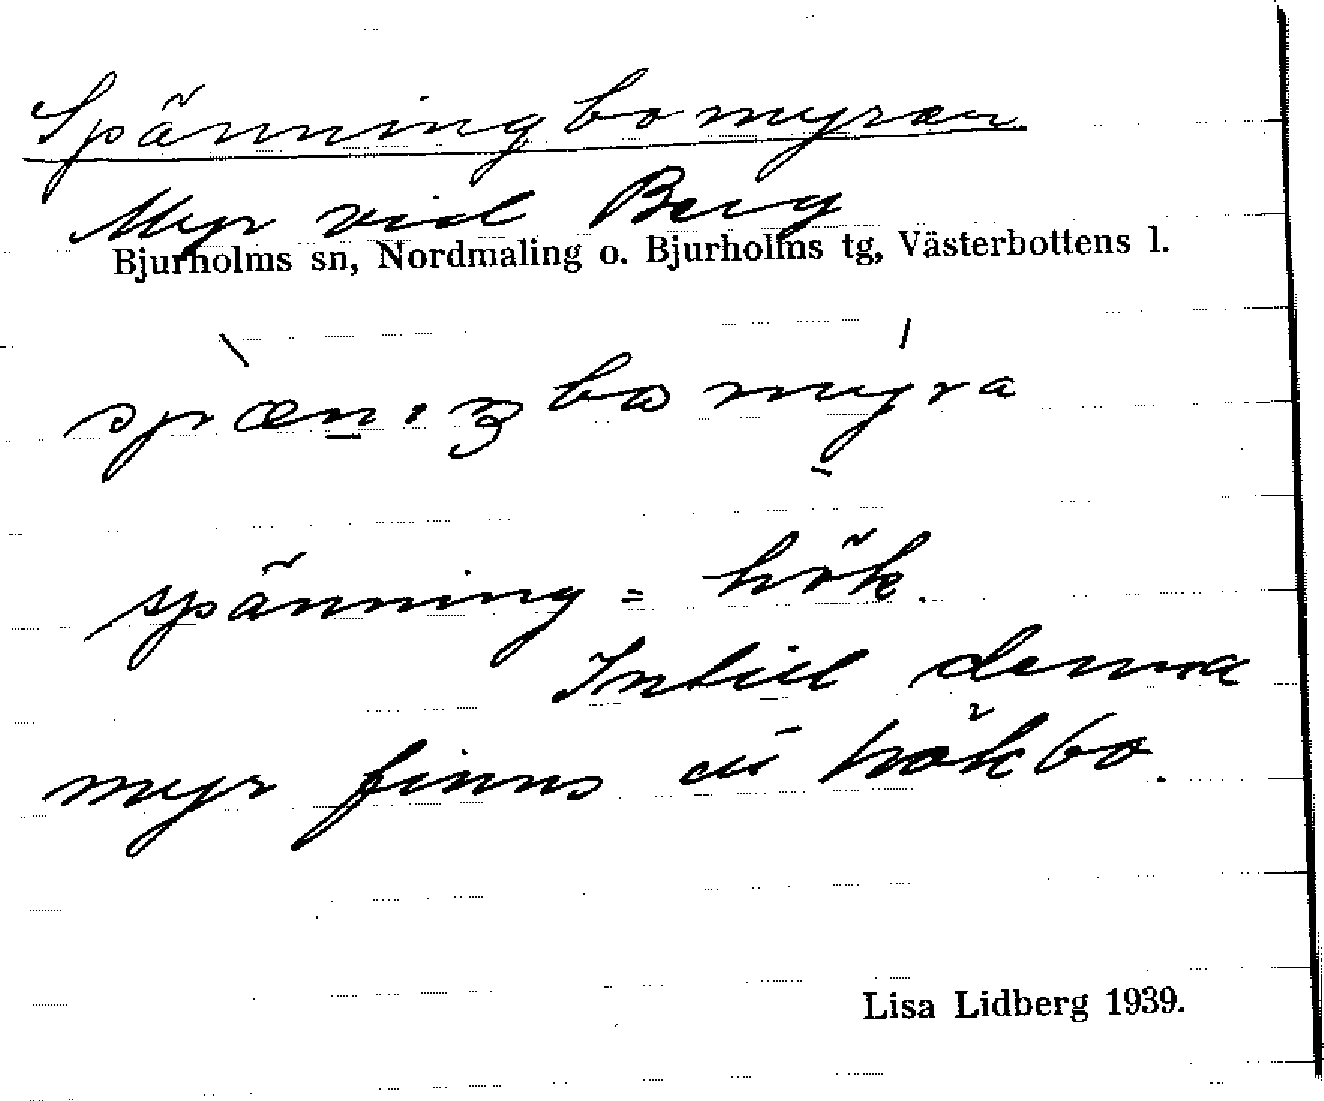 Spänningbomyran
Myr vid Berg
Bjurholms sn, Nordmaling o. Bjurholms tg, Västerbottens l.
spänning = hök.
Intill denna
myr finns ett hökbo.
Lisa Lidberg 1939.